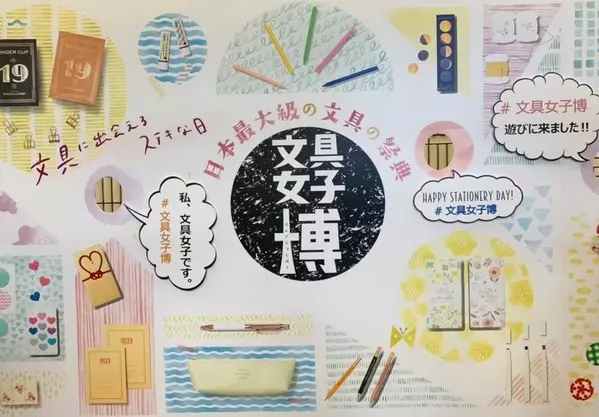 BINDER CLIP
19
19
文具に出会える
ステキな日
日本最大級の文具の祭典
文具
女子
博
# 文具女子博
遊びに来ました!!
HAPPY STATIONERY DAY!
# 文具女子博
私、文具女子です。
# 文具女子博